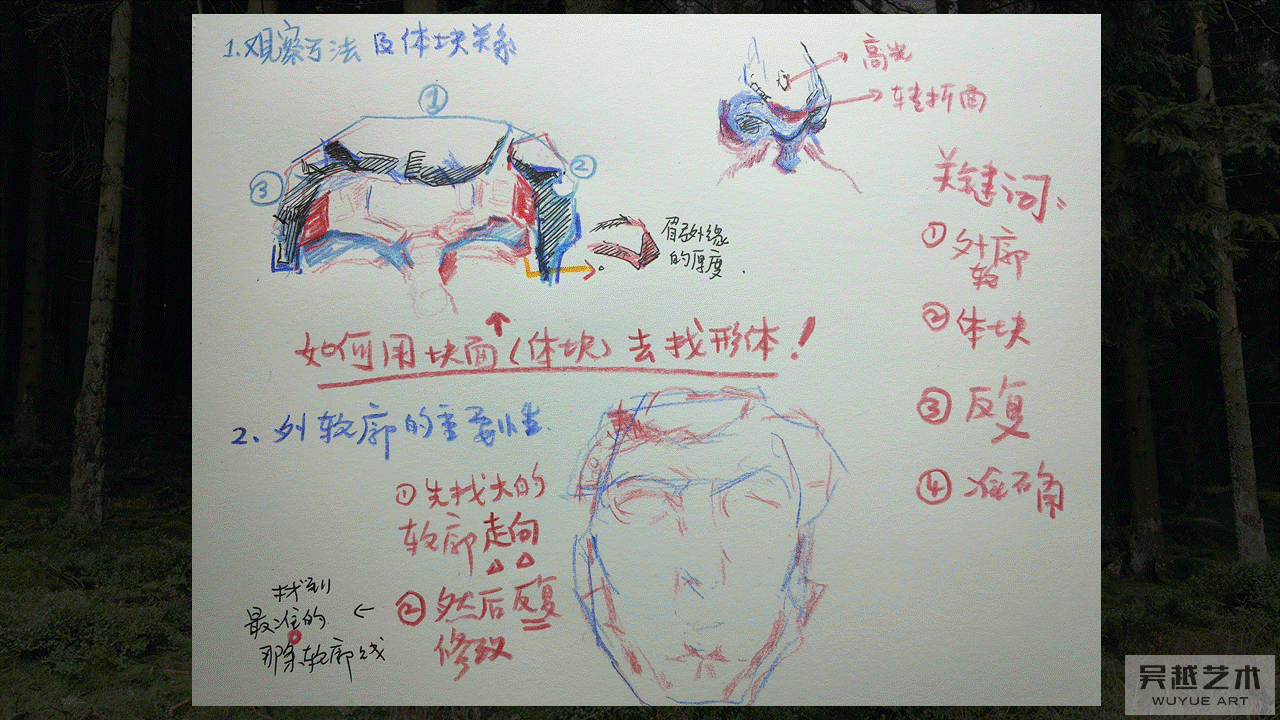 1.观察方法及体块关系
①
②
③
高光
转折面
眉弓外缘
的厚度.
如何用块面(体块)去找形体!
关键词:
①外轮廓
②体块
③反复
④准确
2.外轮廓的重要性.
①先找大的
轮廓走向
②然后反复
修改
找到
最准的
那条轮廓线
吴越艺术
WUYUE ART